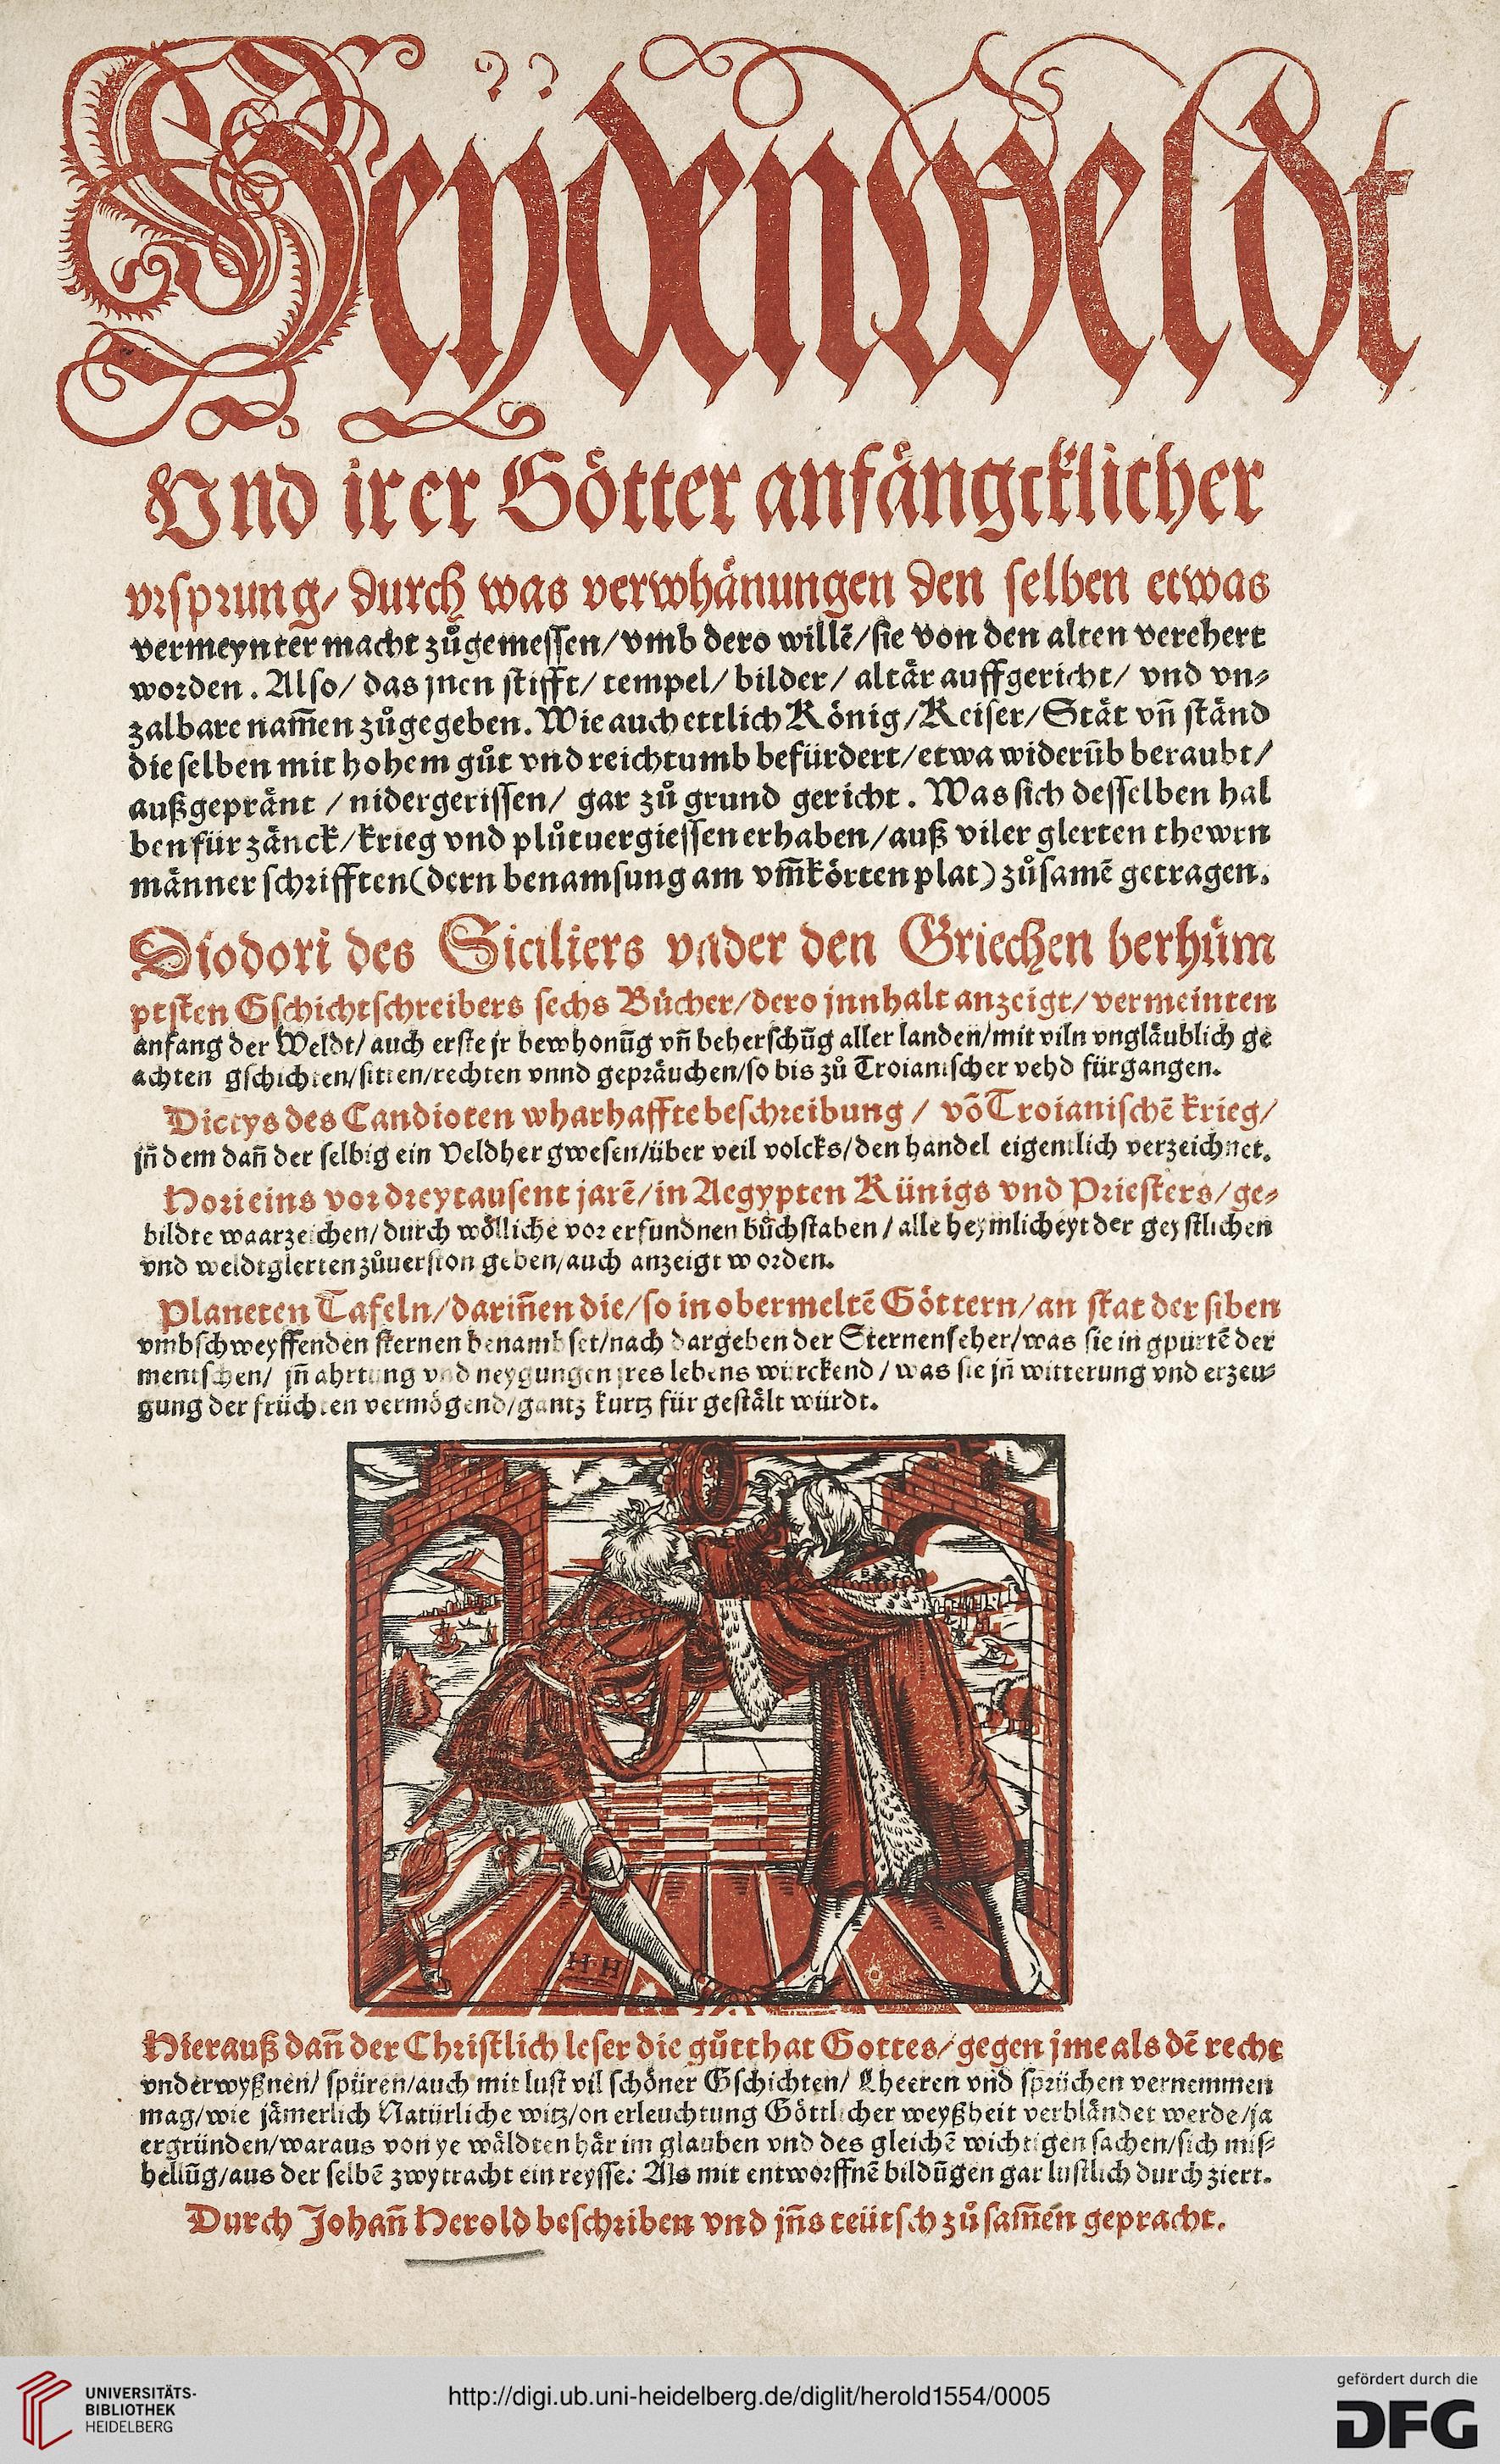 Heÿdenweldt
Vnd irer Goͤtter anfaͤngcklicher
vrsprung/ durch was verwhaͤnungen den selben etwas
vermeynter macht zuͦgemessen/ vmb dero willē/ sie von den alten verehert
worden. Also/ das jnen stifft/ tempel/ bilder/ altaͤr auffgericht/ vnd vn⸗
zalbare nam̄en zuͦgegeben. Wie auch ettlich Koͤnig/ Keiser/ Staͤt vn̄ staͤnd
die selben mit hohem guͦt vnd reichtumb befürdert/ etwa widerūb beraubt/
außgepraͤnt / nidergerissen/ gar zuͦ grund gericht. Was sich desselben hal
ben für zaͤnck/ krieg vnd pluͦtuergiessen erhaben/ auß viler glerten thewrn
maͤnner schrifften (dern benamsung am vm̄koͤrten plat) zuͦsamē getragen.
Diodori des Siciliers vnder den Griechen berhüm
ptsten Gschichtschreibers sechs Buͤcher/ dero jnnhalt anzeigt/ vermeinten
anfang der Weldt/ auch erste jr bewhonūg vn̄ beherschūg aller landen/ mit viln vnglaͤublich ge
achten gschichten/ sitten/ rechten vnnd gepraͤuchen/ so bis zuͦ Troianischer vehd fürgangen.
Dictys des Candioten wharhaffte beschreibung / vō Troianischē krieg/
jn̄ dem dan̄ der selbig ein Veldher gwesen/ über veil volcks/ den handel eigentlich verzeichnet.
Horieins vor dreytausent jarē/ in Aegypten Künigs vnd Priesters/ ge⸗
bildte waarzeichen/ durch woͤlliche vor erfundnen buͦchstaben / alle heymlicheyt der geystlichen
vnd weldtglerten zuͦuerston geben/ auch anzeigt worden.
Planeten Tafeln/ darin̄en die/ so in obermeltē Goͤttern/ an stat der siben
vmbschweyffenden sternen benambset/ nach dargeben der Sternenseher/ was sie in gpurtē der
mentschen/ jn̄ ahrtung vnd neygungen jres lebens würckend / was sie jn̄ witterung vnd erzeu⸗
gung der früchten vermoͤgend/ gantz kurtz für gestaͤlt würdt.
HH
Hierauß dan̄ der Christlich leser die guͤtthat Gottes/ gegen jme als dē recht
vnderwyßnen/ spüren/ auch mit lust vil schoͤner Gschichten/ Lheeren vnd sprüchen vernemmen
mag/ wie jaͤmerlich Natürliche witz/ on erleuchtung Goͤttlicher weyßheit verblaͤndet werde/ ja
ergründen/ waraus von ye waͤldten haͤr im glauben vnd des gleichē wichtigen sachen/ sich miß⸗
hellūg/ aus der selbē zwytracht ein reysse. Als mit entworffnē bildūgen gar lustlich durch ziert.
Durch Johan̄ Herold beschriben vnd jn̄s teütsch zuͦsam̄en gepracht.
UNIVERSITÄTS-
BIBLIOTHEK
HEIDELBERG
http://digi.ub.uni-heidelberg.de/diglit/herold1554/0005
gefördert durch die
DFG